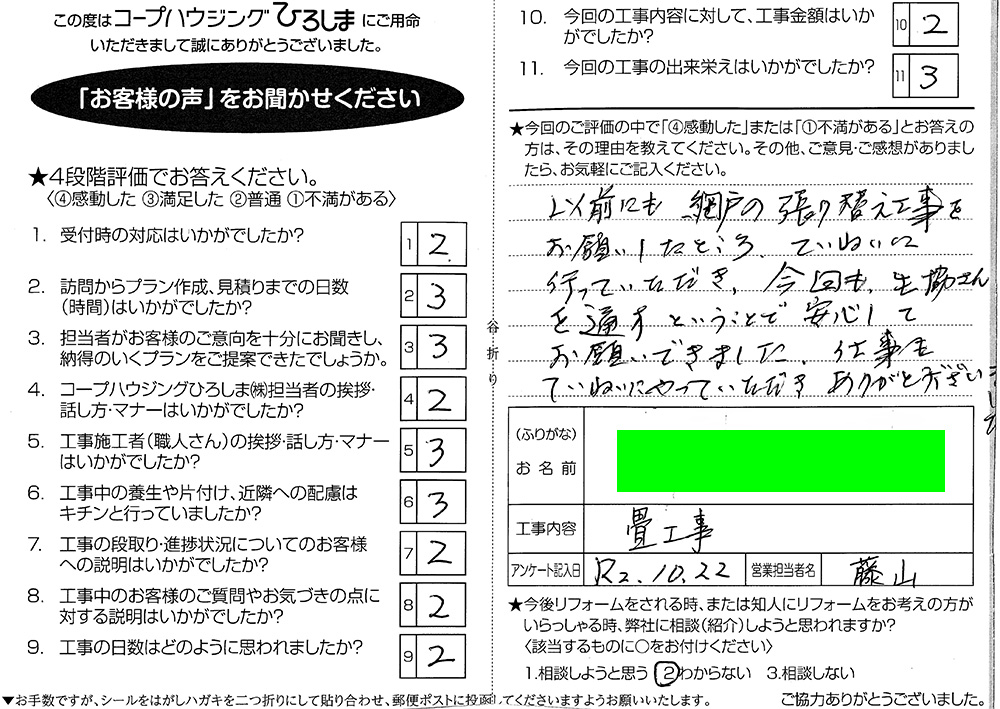 この度はコープハウジングひろしまにご用命
いただきまして誠にありがとうございました。
「お客様の声」をお聞かせください
★4段階評価でお答えください。
〈④感動した ③満足した ②普通 ①不満がある〉
1. 受付時の対応はいかがでしたか?
1 2
2. 訪問からプラン作成、見積りまでの日数
(時間)はいかがでしたか?
2 3
3. 担当者がお客様のご意向を十分にお聞きし、
納得のいくプランをご提案できたでしょうか。
3 3
4. コープハウジングひろしま㈱担当者の挨拶・
話し方・マナーはいかがでしたか?
4 2
5. 工事施工者(職人さん)の挨拶・話し方・マナー
はいかがでしたか?
5 3
6. 工事中の養生や片付け、近隣への配慮は
キチンと行っていましたか?
6 3
7. 工事の段取り・進捗状況についてのお客様
への説明はいかがでしたか?
7 2
8. 工事中のお客様のご質問やお気づきの点に
対する説明はいかがでしたか?
8 2
9. 工事の日数はどのように思われましたか?
9 2
谷折り
10. 今回の工事内容に対して、工事金額はいか
がでしたか?
10 2
11. 今回の工事の出来栄えはいかがでしたか?
11 3
★今回のご評価の中で「④感動した」または「①不満がある」とお答えの
方は、その理由を教えてください。その他、ご意見・ご感想がありまし
たら、お気軽にご記入ください。
以前にも 網戸の張り替え工事を
お願いしたところ、ていねいに
行っていただき、今回も、生協さん
を通すということで安心して
お願いできました。仕事も
ていねいにやっていただき ありがとうございま
した
(ふりがな)
お名前
工事内容 畳工事
アンケート記入日 R2.10.22 営業担当者名 藤山
★今後リフォームをされる時、または知人にリフォームをお考えの方が
いらっしゃる時、弊社に相談(紹介)しようと思われますか?
〈該当するものに○をお付けください〉
1.相談しようと思う 2わからない 3.相談しない
▼お手数ですが、シールをはがしハガキを二つ折りにして貼り合わせ、郵便ポストに投函してくださいますようお願いいたします。
ご協力ありがとうございました。